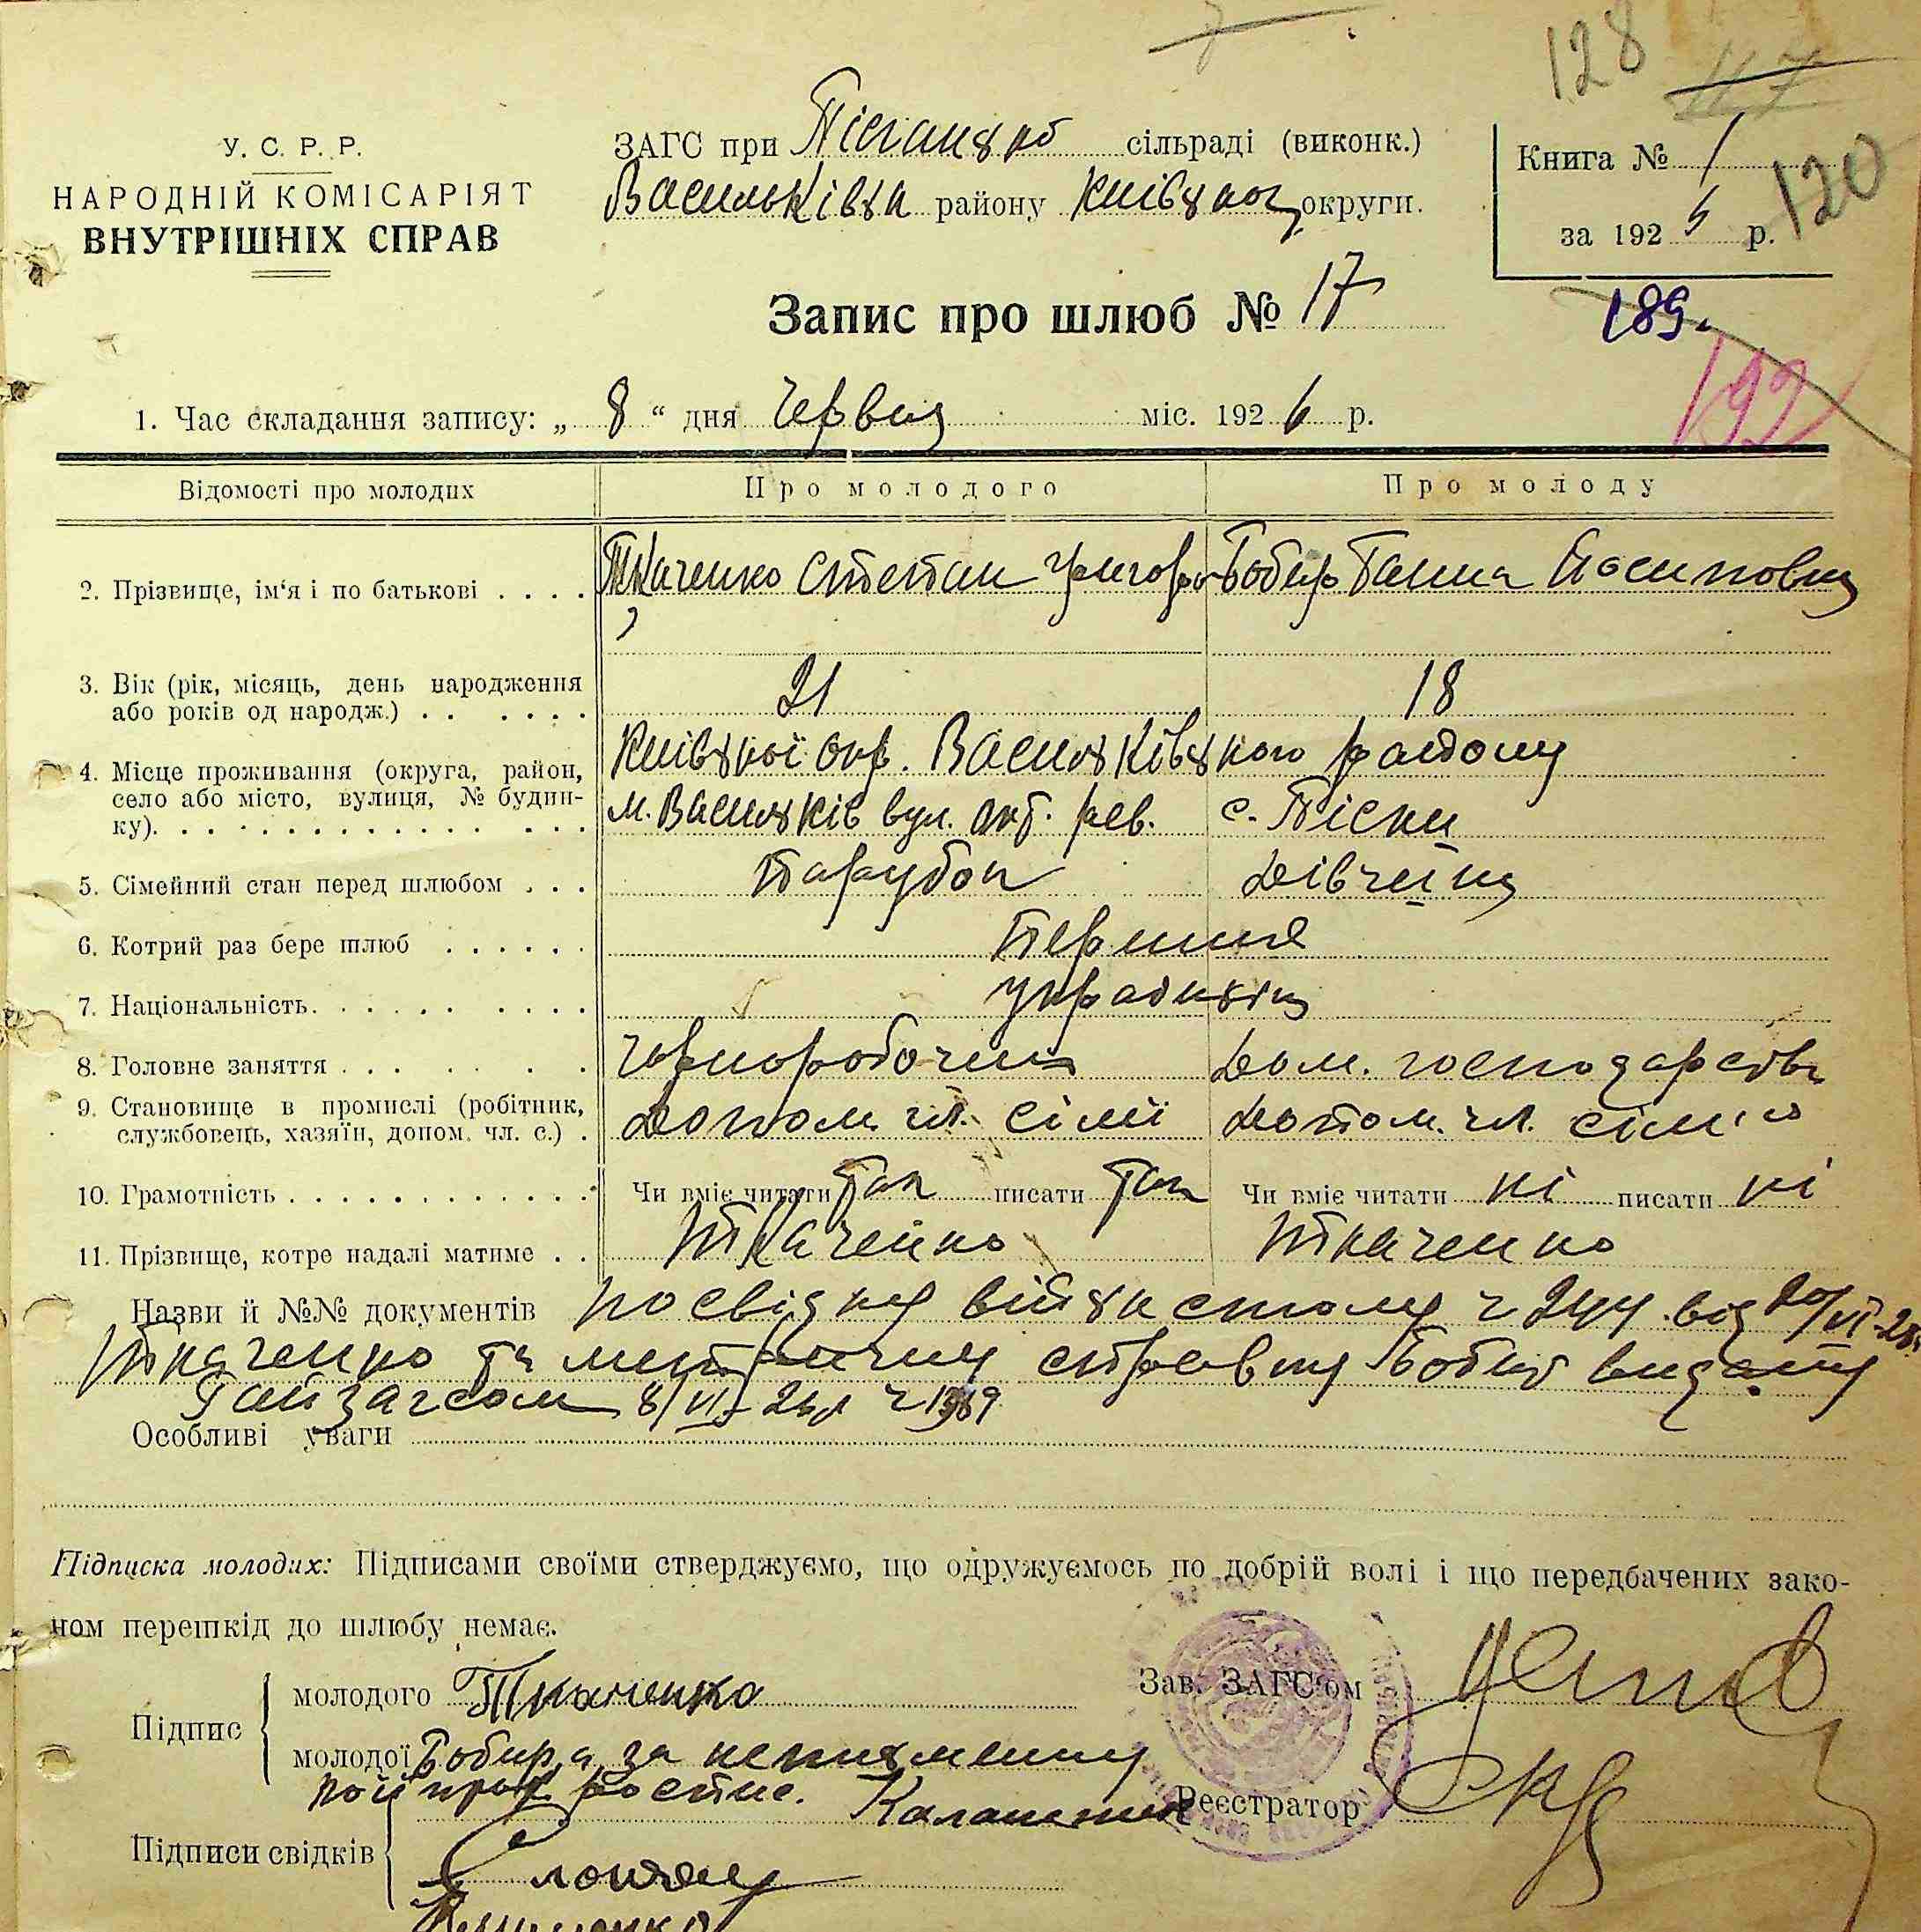 128
117
У. С. Р. Р.
НАРОДНІЙ КОМІСАРІЯТ
ВНУТРІШНІХ СПРАВ
ЗАГС при Піщанськ сільраді (виконк.)
Васильківськ району Київської округи.
Книга № 1
за 1926 р.
120
Запис про шлюб № 17
189
192
1. Час складання запису: „ 8 “ дня Червня міс. 1926 р.
Відомості про молодих
Про молодого
Про молоду
2. Прізвище, ім‘я і по батькові . . . . Ткаченко Степан Григоро Бобир Ганна Йосиповна
3. Вік (рік, місяць, день народження
або років од народж.) . . . . . . 21 18
4. Місце проживання (округа, район, Київської окр. Васильківського району
село або місто, вулиця, № будин- м. Васильків вул. окт. рев. с. Піски
ку). . . . . . . . . . . . . . . .
5. Сімейний стан перед шлюбом . . . Парубок Дівчина
6. Котрий раз бере шлюб . . . . . . Перший
7. Національність. . . . . . . . . українці
8. Головне заняття . . . . . . . Чорноробочий Дом. господарств
9. Становище в промислі (робітник,
службовець, хазяїн, допом. чл. с.) . Допом. чл. сімї Допом. чл. сім'ї
10. Грамотність . . . . . . . . . . . . Чи вміє читати так писати так Чи вміє читати ні писати ні
11. Прізвище, котре надалі матиме . . Ткаченко Ткаченко
Назви й №№ документів посвідку військ столу ч 244 від 20/VI-25
Ткаченко та метричну справку Бобир видану
Райзагсом 8/VI-26 ч 1989
Особливі уваги
Підписка молодих: Підписами своїми стверджуємо, що одружуємось по добрій волі і що передбачених зако-
ном перешкід до шлюбу немає.
Підпис
молодого Ткаченко
молодої Бобир а за неписменну
Зав. ЗАГС‘ом
Реєстратор
Підписи свідків